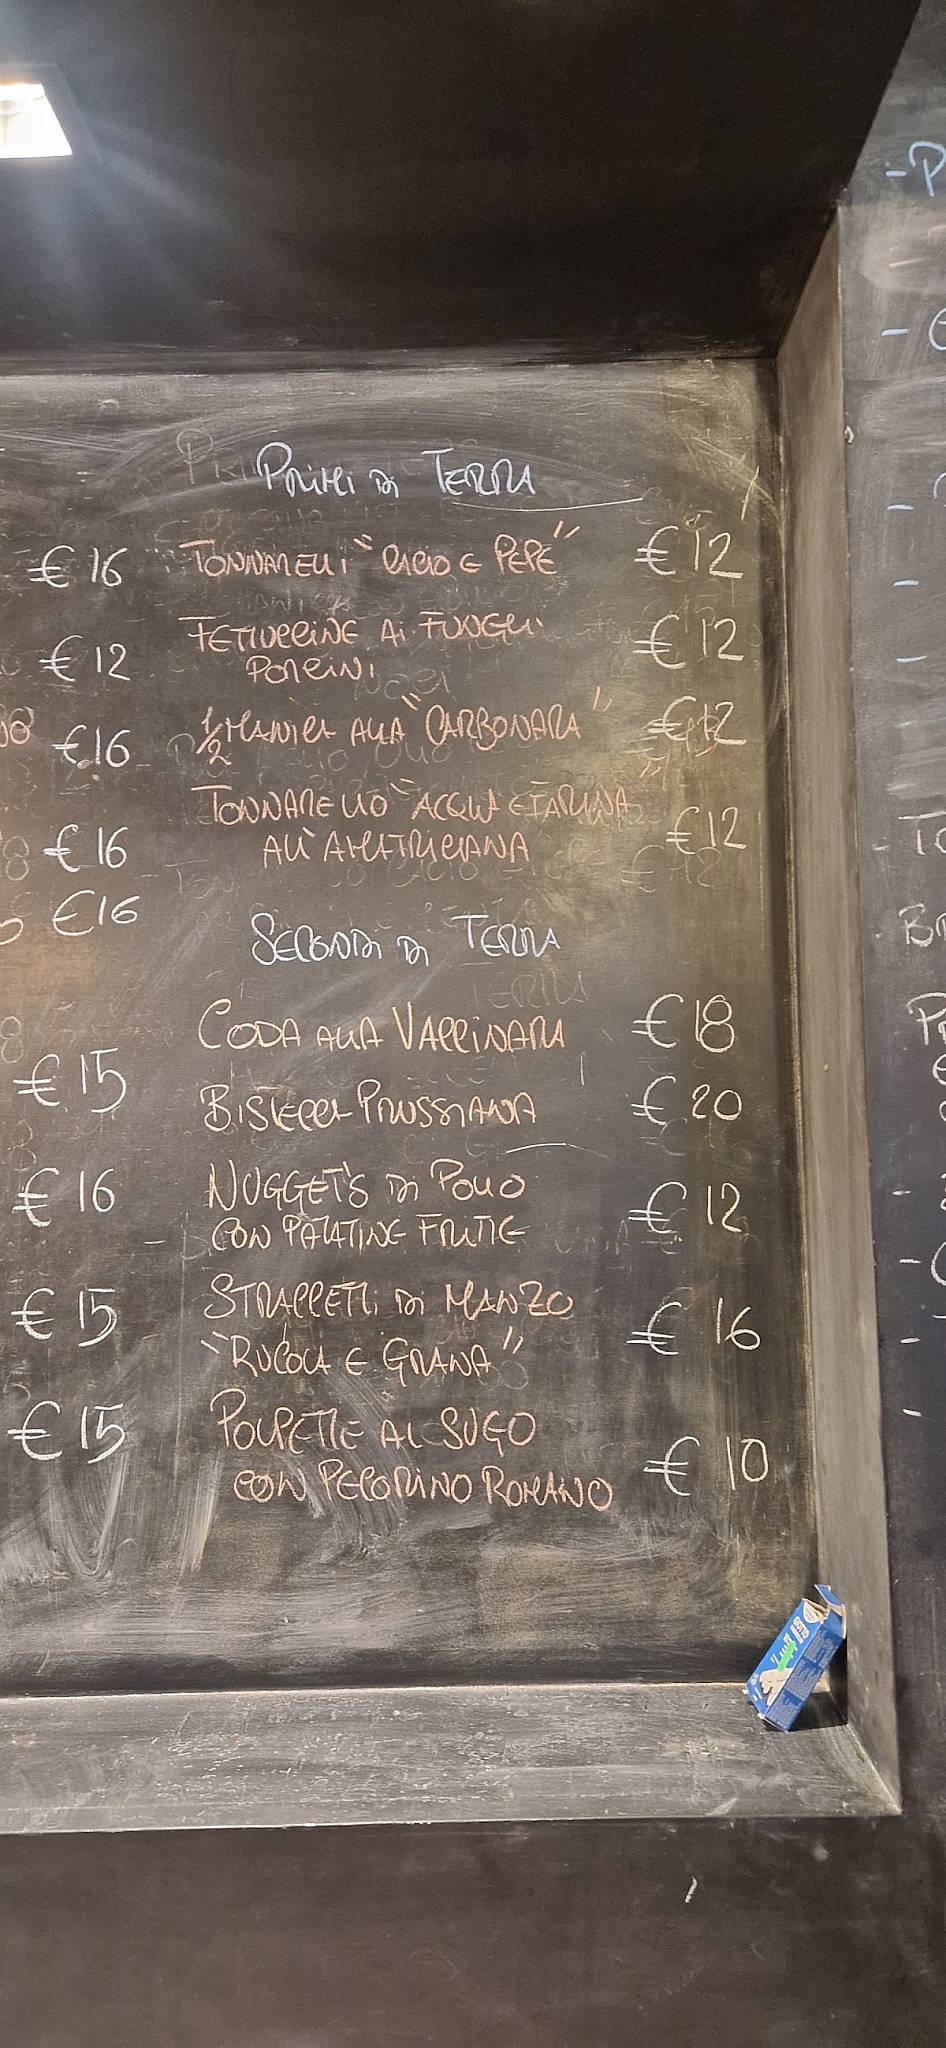 Primi di Terra
€ 16 Tonnarelli "Cacio e Pepe" € 12
€ 12 Fettuccine ai Funghi € 12
Porcini
€16 1/2 Manica alla "Carbonara" €12
Tonnarello "Acqua e Farina"
€16 all'Amatriciana €12
€16
Secondi di Terra
Coda alla Vaccinara €18
€ 15 Bistecca Prussiana € 20
€ 16 Nugget's di Pollo € 12
con Patatine Fritte
€ 15 Straccetti di Manzo € 16
"Rucola e Grana"
€ 15 Polpette al Sugo
con Pecorino Romano € 10
GIOTTO